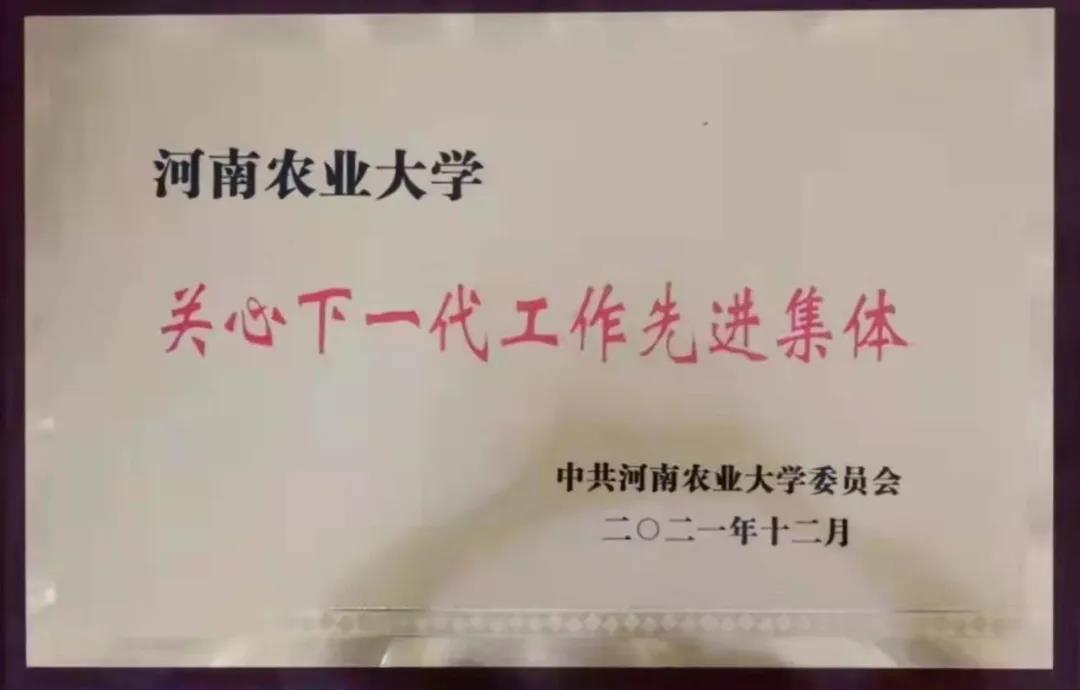 河南农业大学
关心下一代工作先进集体
中共河南农业大学委员会
二〇二一年十二月